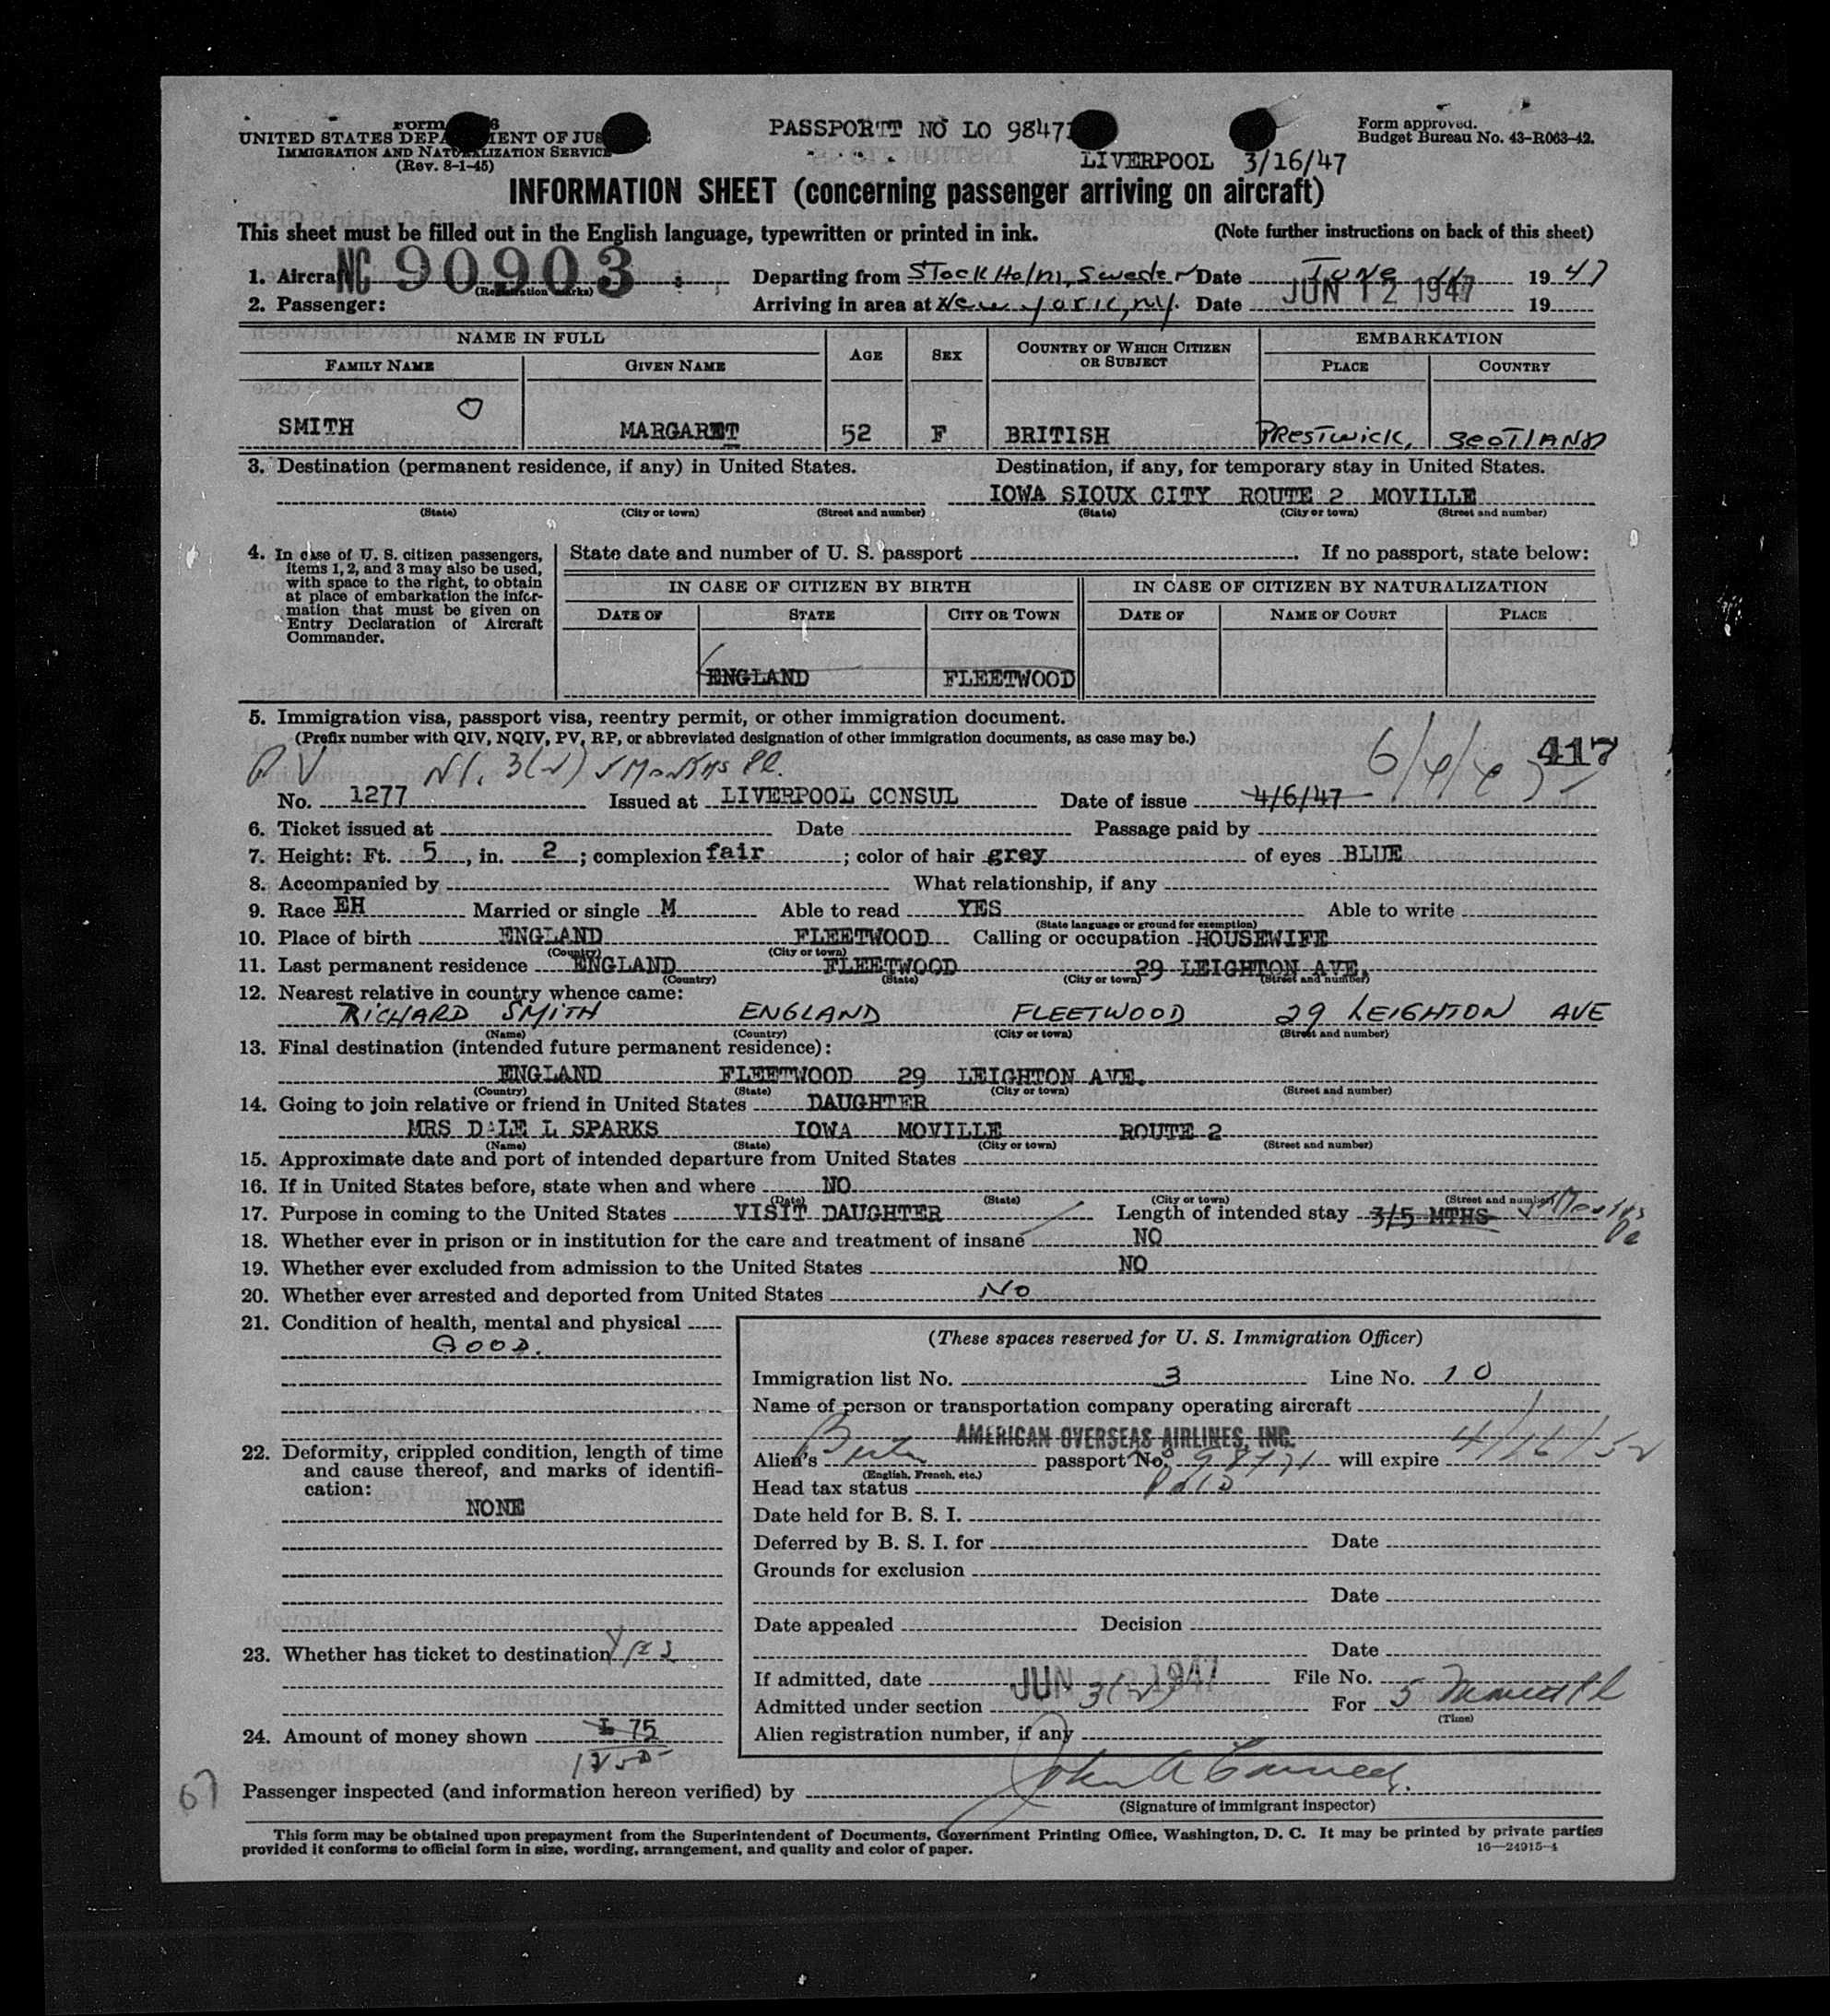 PASSPORTT NO LO 9847
Form approved.
Budget Bureau No. 43-R063-42.
UNITED STATES DEPARTMENT OF JUSTICE
IMMIGRATION AND NATURALIZATION SERVICE
(Rev. 8-1-45)
LIVERPOOL 3/16/47
INFORMATION SHEET (concerning passenger arriving on aircraft)
This sheet must be filled out in the English language, typewritten or printed in ink. (Note further instructions on back of this sheet)
1. Aircraft NC 90903 (Registration marks) Departing from Stockholm, Sweden Date June 11 1947
2. Passenger: Arriving in area at New York, NY. Date JUN 12 1947 19
NAME IN FULL AGE SEX COUNTRY OF WHICH CITIZEN OR SUBJECT EMBARKATION
FAMILY NAME GIVEN NAME PLACE COUNTRY
SMITH MARGARET 52 F BRITISH PRESTWICK, SCOTLAND
3. Destination (permanent residence, if any) in United States. Destination, if any, for temporary stay in United States.
IOWA SIOUX CITY ROUTE 2 MOVILLE
(State) (City or town) (Street and number) (State) (City or town) (Street and number)
4. In case of U. S. citizen passengers, items 1, 2, and 3 may also be used, with space to the right, to obtain at place of embarkation the information that must be given on Entry Declaration of Aircraft Commander.
State date and number of U. S. passport . If no passport, state below:
IN CASE OF CITIZEN BY BIRTH IN CASE OF CITIZEN BY NATURALIZATION
DATE OF STATE CITY OR TOWN DATE OF NAME OF COURT PLACE
ENGLAND FLEETWOOD
5. Immigration visa, passport visa, reentry permit, or other immigration document.
(Prefix number with QIV, NQIV, PV, RP, or abbreviated designation of other immigration documents, as case may be.)
PV 3(2) 5 Months 6/4/47 417
No. 1277 Issued at LIVERPOOL CONSUL Date of issue 4/6/47
6. Ticket issued at Date Passage paid by
7. Height: Ft. 5, in. 2; complexion fair; color of hair grey of eyes BLUE
8. Accompanied by What relationship, if any
9. Race EH Married or single M Able to read YES Able to write
(State language or ground for exemption)
10. Place of birth ENGLAND FLEETWOOD Calling or occupation HOUSEWIFE
(Country) (City or town)
11. Last permanent residence ENGLAND FLEETWOOD 29 LEIGHTON AVE.
(Country) (State) (City or town) (Street and number)
12. Nearest relative in country whence came:
RICHARD SMITH ENGLAND FLEETWOOD 29 LEIGHTON AVE
(Name) (Country) (City or town) (Street and number)
13. Final destination (intended future permanent residence):
ENGLAND FLEETWOOD 29 LEIGHTON AVE.
(Country) (State) (City or town) (Street and number)
14. Going to join relative or friend in United States DAUGHTER
MRS DALE L SPARKS IOWA MOVILLE ROUTE 2
(Name) (State) (City or town) (Street and number)
15. Approximate date and port of intended departure from United States
16. If in United States before, state when and where NO
(Date) (State) (City or town) (Street and number)
17. Purpose in coming to the United States VISIT DAUGHTER Length of intended stay 3/5 MTHS 5 Months
18. Whether ever in prison or in institution for the care and treatment of insane NO
19. Whether ever excluded from admission to the United States NO
20. Whether ever arrested and deported from United States No
21. Condition of health, mental and physical
GOOD.
22. Deformity, crippled condition, length of time and cause thereof, and marks of identification:
NONE
23. Whether has ticket to destination Yes
24. Amount of money shown £ 75
(These spaces reserved for U. S. Immigration Officer)
Immigration list No. 3 Line No. 10
Name of person or transportation company operating aircraft
AMERICAN OVERSEAS AIRLINES, INC.
Alien's passport No. 98471 will expire 4/16/52
(English, French, etc.)
Head tax status Paid
Date held for B. S. I.
Deferred by B. S. I. for Date
Grounds for exclusion
Date
Date appealed Decision
Date
If admitted, date JUN 12 1947 File No.
Admitted under section 3(2) For 5 months
(Time)
Alien registration number, if any
67
Passenger inspected (and information hereon verified) by
(Signature of immigrant inspector)
This form may be obtained upon prepayment from the Superintendent of Documents, Government Printing Office, Washington, D. C. It may be printed by private parties
provided it conforms to official form in size, wording, arrangement, and quality and color of paper. 16—24915-4